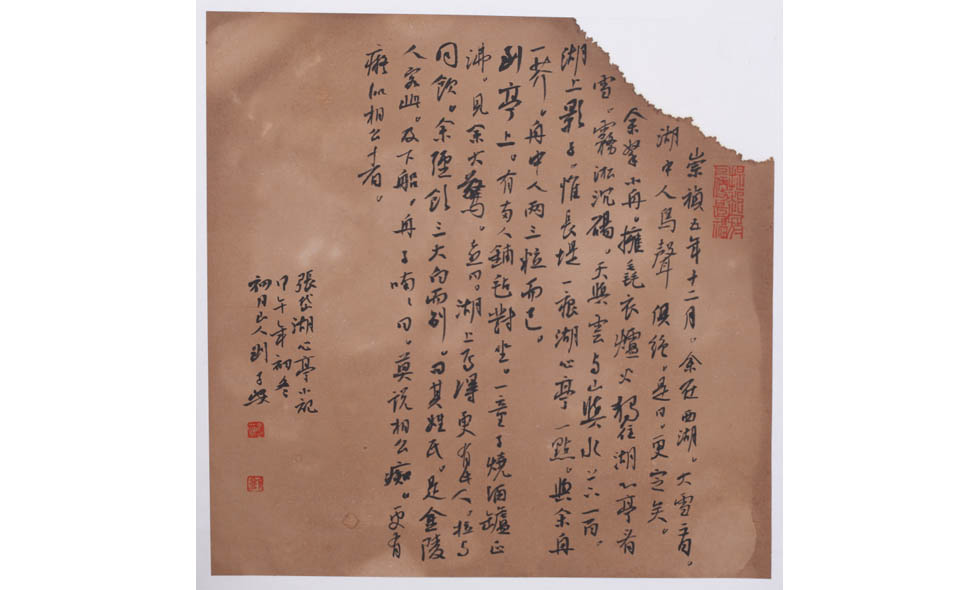 崇禎五年十二月。余在西湖。大雪三日。
湖中人鳥聲俱絕。是日。更定矣。
余拏小舟。擁毳衣爐火獨往湖心亭看
雪。霧淞沆碭。天與雲与山與水上下一白。
湖上影子。惟長堤一痕湖心亭一點。與余舟
一芥。舟中人兩三粒而已。
到亭上。有兩人鋪氈對坐。一童子燒酒爐正
沸。見余大驚。喜曰。湖上焉得更有此人。拉与
同飲。余強飲三大白而別。問其姓氏。是金陵
人客此。及下船。舟子喃喃曰。莫說相公痴。更有
癡似相公者。
張岱湖心亭小記
甲午年初冬
初月山人劉子